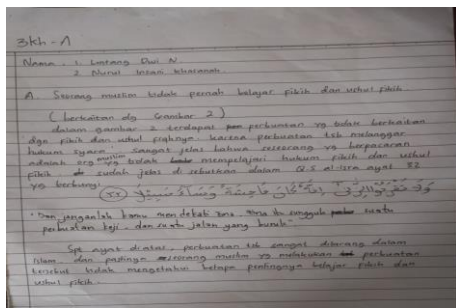 3kh - A
Nama : 1. Lintang Dwi N
2. Nurul Insani Khasanah
A. Seorang muslim tidak pernah belajar fikih dan ushul fikih
( berkaitan dg Gambar 2 )
dalam gambar 2 terdapat perbuatan yg tidak berkaitan
dgn fikih dan ushul fiqhnya. karena perbuatan tsb melanggar
hukum syara. Sangat jelas bahwa seseorang yg berpacaran
adalah org muslim yg tidak mempelajari hukum fikih dan ushul
fikih. sudah jelas di sebutkan dalam Q.S al-isra ayat 32
yg berbunyi
وَلَا تَقْرَبُوا الزِّنَىٰ إِنَّهُ كَانَ فَاحِشَةً وَسَاءَ سَبِيلًا (٣٢)
"Dan janganlah kamu mendekati zina, zina itu sungguh suatu
perbuatan keji, dan suatu jalan yang buruk"
Spt ayat diatas, perbuatan tsb sangat dilarang dalam
Islam, dan pastinya seseorang muslim yg melakukan perbuatan
tersebut tidak mengetahui betapa pentingnya belajar fikih dan
ushul fikih.